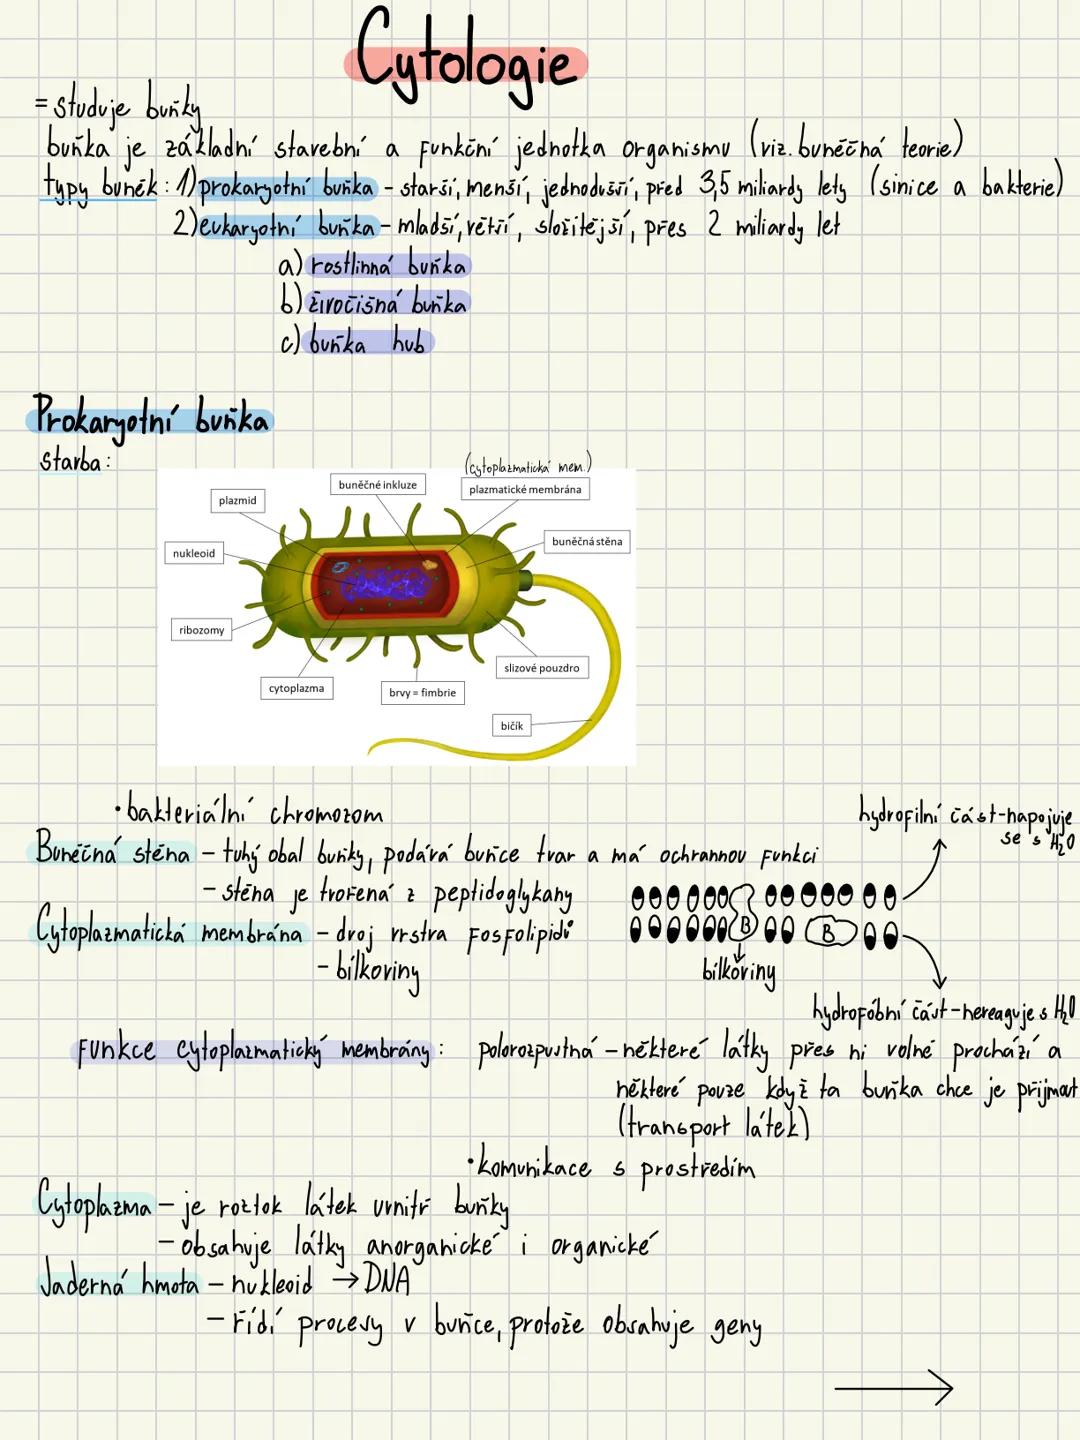 Cytologie
= studuje buňky
buňka je základní stavební a funkční jednotka organismu (viz. buněčná teorie)
typy buněk: 1) prokaryotní buňka - starší, menší, jednodušší, před 3,5 miliardy lety (sinice a bakterie)
2) eukaryotní buňka - mladší, větší, složitější, přes 2 miliardy let
a) rostlinná buňka
b) živočišná buňka
c) buňka hub
Prokaryotní buňka
starba:
(cytoplazmatická mem.)
buněčné inkluze
plazmatické membrána
plazmid
buněčná stěna
nukleoid
ribozomy
slizové pouzdro
cytoplazma
brvy = fimbrie
bičík
•bakteriální chromozom
hydrofilní část-napojuje
se s H₂O
Buněčná stěna - tuhý obal buňky, podává buňce tvar a má ochrannou funkci
- stěna je trořená z peptidoglykany
Cytoplazmatická membrána - droj vrstva fosfolipidů
B B
- bílkoviny
bílkoviny
hydrofóbní část-nereaguje s H₂O
funkce cytoplazmatický membrány: polorozpustná - některé látky přes ni volné prochází a
některé pouze když ta buňka chce je přijmout
(transport látek)
•komunikace s prostředím
Cytoplazma - je roztok látek uvnitř buňky
- obsahuje látky anorganické i organické
Jaderná hmota - nukleoid → DNA
- řídí procesy v buňce, protože obsahuje geny